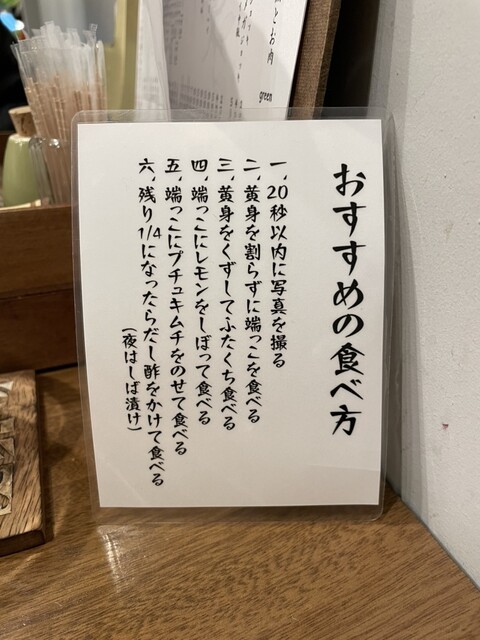 おすすめの食べ方
一、20秒以内に写真を撮る
二、黄身を割らずに端っこを食べる
三、黄身をくずしてふたくち食べる
四、端っこにレモンをしぼって食べる
五、端っこにプチュキムチをのせて食べる
六、残り1/4になったらだし酢をかけて食べる
(夜はしば漬け)
とお肉
green